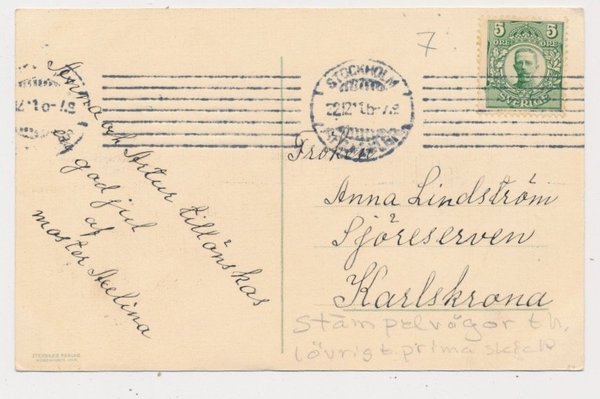 7
5 5
ÖRE ÖRE
SVERIGE
STOCKHOLM
22.12.16-7.E
Anna och Artur tillönskas
en god jul
af
moster Helina
Fröken
Anna Lindström
Sjöreserven
Karlskrona
Stämpelvågor t.h.
i övrigt prima skick